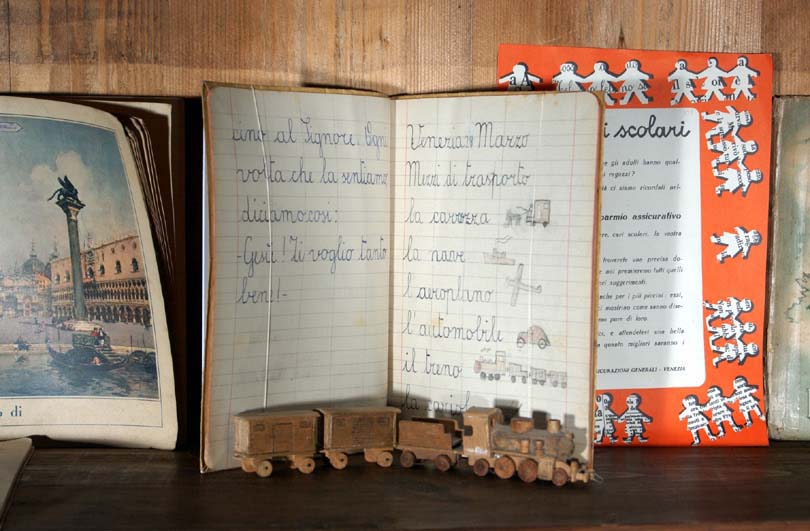 o di
cino al Signore. Ogni
volta che la sentiamo
diciamo così:
-Gesù! Ti voglio tanto
bene!-
Venezia Marzo
Mezzi di trasporto
la carozza
la nave
l'aeroplano
l'automobile
il treno
i scolari
gli adulti hanno qual-
ragazzi?
ci siamo ricordati nel-
armio assicurativo
cari scolari, la vostra
troverete una precisa do-
noi premieremo tutti quelli
suggerimenti.
anche per i più precisi: essi,
ci mostrino come sanno dise-
pure di loro.
e attendetevi una bella
migliori saranno i
CURAZIONI GENERALI - VENEZIA